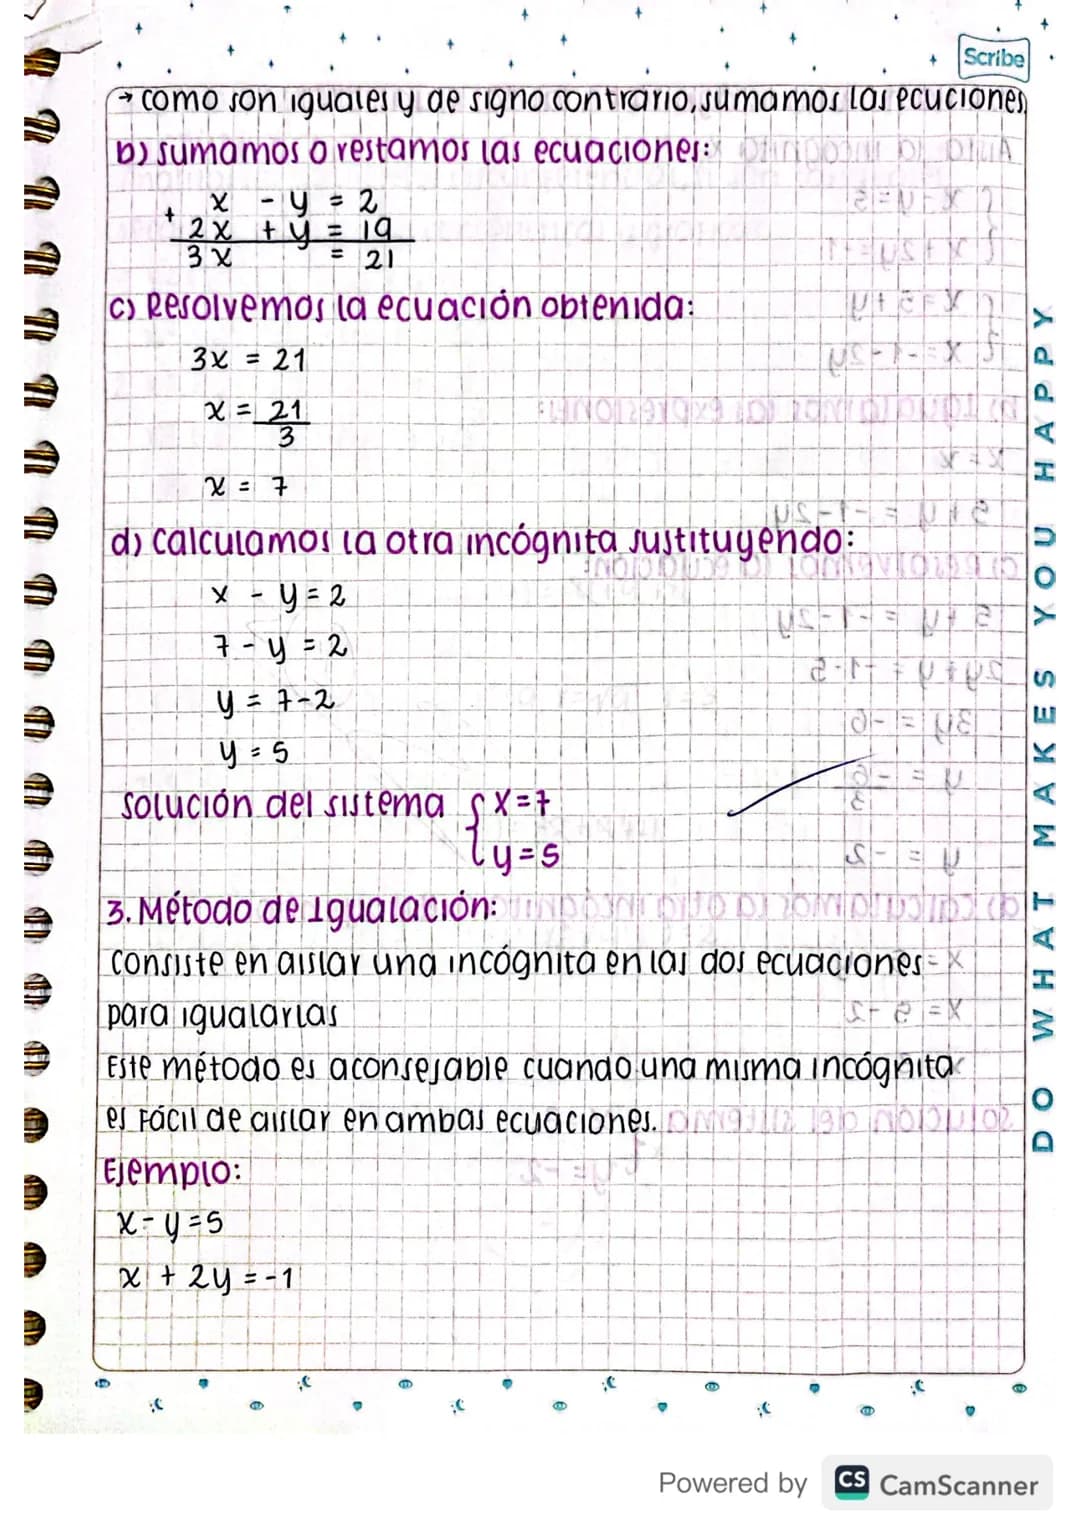 Scribe
→ como son iguales y de signo contrario, sumamos las ecuciones
b) sumamos o restamos las ecuaciones:
x - y = 2
+ 2x + y = 19
3x = 21
c) Resolvemos la ecuación obtenida:
3x = 21
x = 21
3
x = 7
d) calculamos la otra incógnita sustituyendo:
x - y = 2
7 - y = 2
y = 7-2
y = 5
solución del sistema { x=7
y=5
3. Método de Igualación:
consiste en aislar una incógnita en las dos ecuaciones
para igualarlas
Este método es aconsejable cuando una misma incógnita
es Fácil de aislar en ambas ecuaciones.
Ejemplo:
x-y=5
x + 2y = -1
DO WHAT MAKES YOU HAPPY
Powered by CS CamScanner